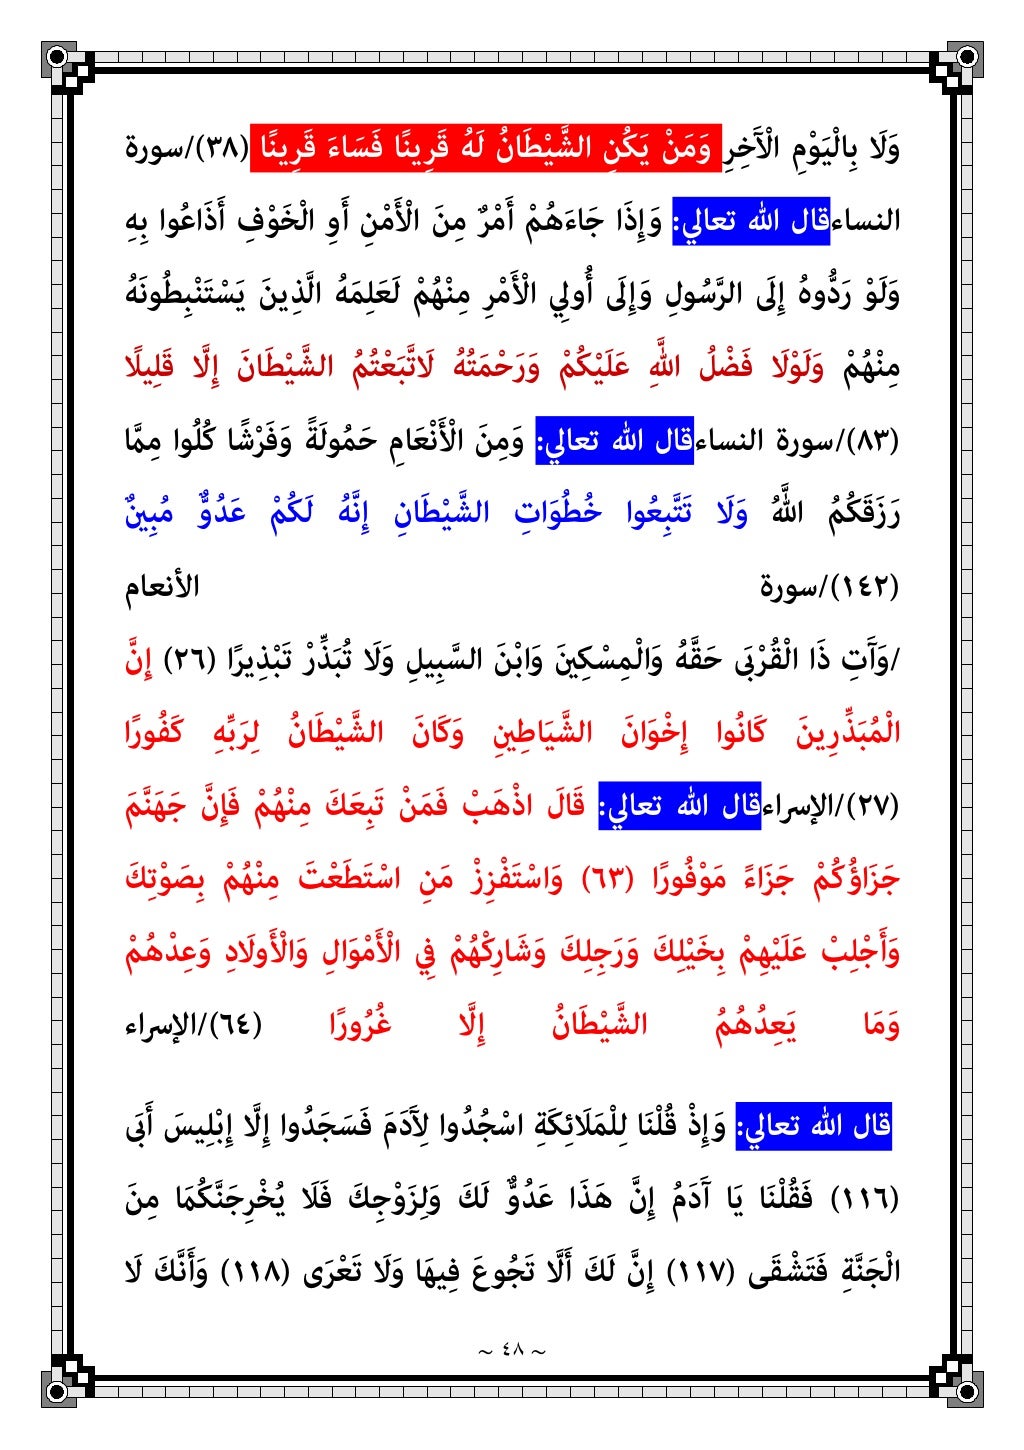 وَلَا بِالْيَوْمِ الْآَخِرِ وَمَنْ يَكُنِ الشَّيْطَانُ لَهُ قَرِينًا فَسَاءَ قَرِينًا (٣٨)/سورة
النساءقال الله تعالي: وَإِذَا جَاءَهُمْ أَمْرٌ مِنَ الْأَمْنِ أَوِ الْخَوْفِ أَذَاعُوا بِهِ
وَلَوْ رَدُّوهُ إِلَى الرَّسُولِ وَإِلَى أُولِي الْأَمْرِ مِنْهُمْ لَعَلِمَهُ الَّذِينَ يَسْتَنْبِطُونَهُ
مِنْهُمْ وَلَوْلَا فَضْلُ اللَّهِ عَلَيْكُمْ وَرَحْمَتُهُ لَاتَّبَعْتُمُ الشَّيْطَانَ إِلَّا قَلِيلًا
(٨٣)/سورة النساءقال الله تعالي: وَمِنَ الْأَنْعَامِ حَمُولَةً وَفَرْشًا كُلُوا مِمَّا
رَزَقَكُمُ اللَّهُ وَلَا تَتَّبِعُوا خُطُوَاتِ الشَّيْطَانِ إِنَّهُ لَكُمْ عَدُوٌّ مُبِينٌ
(١٤٢)/سورة الأنعام
/وَآَتِ ذَا الْقُرْبَى حَقَّهُ وَالْمِسْكِينَ وَابْنَ السَّبِيلِ وَلَا تُبَذِّرْ تَبْذِيرًا (٢٦) إِنَّ
الْمُبَذِّرِينَ كَانُوا إِخْوَانَ الشَّيَاطِينِ وَكَانَ الشَّيْطَانُ لِرَبِّهِ كَفُورًا
(٢٧)/الإسراءقال الله تعالي: قَالَ اذْهَبْ فَمَنْ تَبِعَكَ مِنْهُمْ فَإِنَّ جَهَنَّمَ
جَزَاؤُكُمْ جَزَاءً مَوْفُورًا (٦٣) وَاسْتَفْزِزْ مَنِ اسْتَطَعْتَ مِنْهُمْ بِصَوْتِكَ
وَأَجْلِبْ عَلَيْهِمْ بِخَيْلِكَ وَرَجِلِكَ وَشَارِكْهُمْ فِي الْأَمْوَالِ وَالْأَولَادِ وَعِدْهُمْ
وَمَا يَعِدُهُمُ الشَّيْطَانُ إِلَّا غُرُورًا (٦٤)/الإسراء
قال الله تعالي: وَإِذْ قُلْنَا لِلْمَلَائِكَةِ اسْجُدُوا لِآَدَمَ فَسَجَدُوا إِلَّا إِبْلِيسَ أَبَى
(١١٦) فَقُلْنَا يَا آَدَمُ إِنَّ هَذَا عَدُوٌّ لَكَ وَلِزَوْجِكَ فَلَا يُخْرِجَنَّكُمَا مِنَ
الْجَنَّةِ فَتَشْقَى (١١٧) إِنَّ لَكَ أَلَّا تَجُوعَ فِيهَا وَلَا تَعْرَى (١١٨) وَأَنَّكَ لَا
~ ٤٨ ~